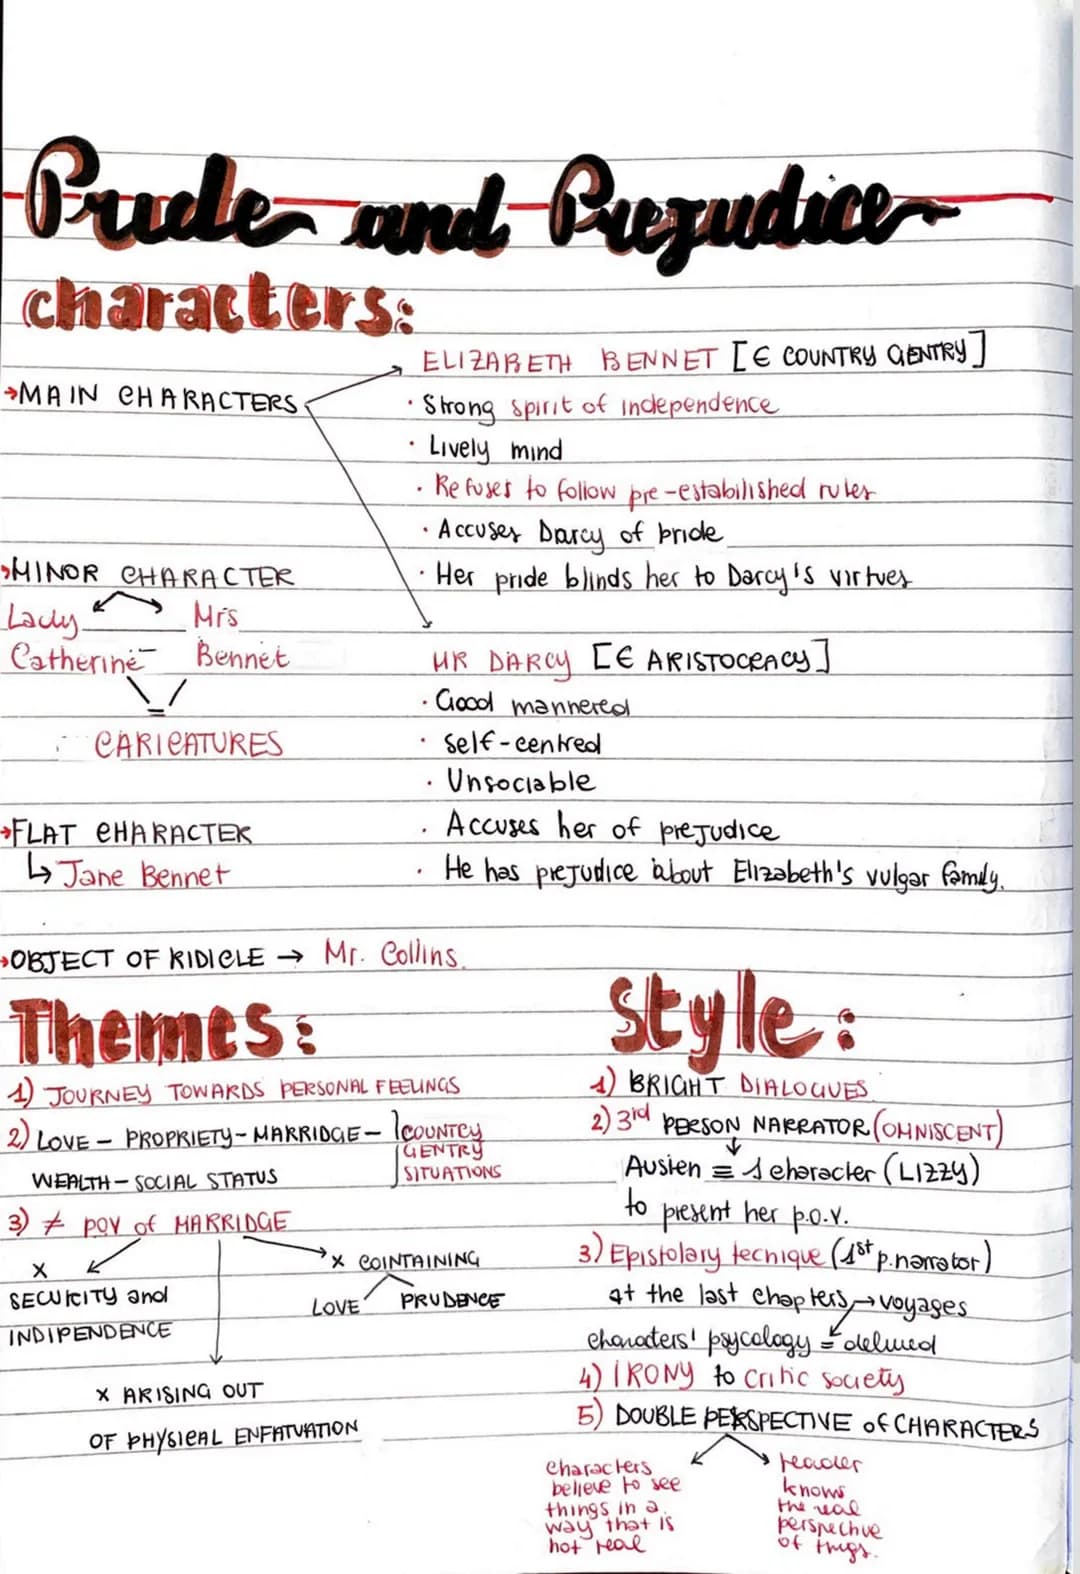 Pride and Prejudice
characters:
→MAIN CHARACTERS
ELIZABETH BENNET [∈ COUNTRY GENTRY]
· Strong spirit of independence
· Lively mind
· Refuses to follow pre-estabilished rules
· Accuses Darcy of pride
· Her pride blinds her to Darcy's virtues
→MINOR CHARACTER
Lady Mrs
Catherine Bennet
=
CARICATURES
MR DARCY [∈ ARISTOCRACY]
· Good mannered
· self-centred
· Unsociable
· Accuses her of prejudice
· He has prejudice about Elizabeth's vulgar family.
→FLAT CHARACTER
↳ Jane Bennet
→OBJECT OF RIDICLE → Mr. Collins.
Themes:
1) JOURNEY TOWARDS PERSONAL FEELINGS
2) LOVE - PROPRIETY - MARRIDGE -
WEALTH - SOCIAL STATUS
COUNTRY
GENTRY
SITUATIONS
3) ≠ POV of MARRIDGE
X
SECURITY and
INDIPENDENCE
X COINTAINING
LOVE PRUDENCE
X ARISING OUT
OF PHYSICAL ENFATUATION
Style:
1) BRIGHT DIALOGUES
2) 3rd PERSON NARRATOR (OMNISCENT)
Austen ≡ 1 character (LIZZY)
to present her p.o.v.
3) Epistolary tecnique (1st p.narrator)
at the last chapters → voyages
characters' psycology = delined
4) IRONY to critic society
5) DOUBLE PERSPECTIVE of CHARACTERS
characters
believe to see
things in a
way that is
not real
reader
knows
the real
perspective
of thigs.